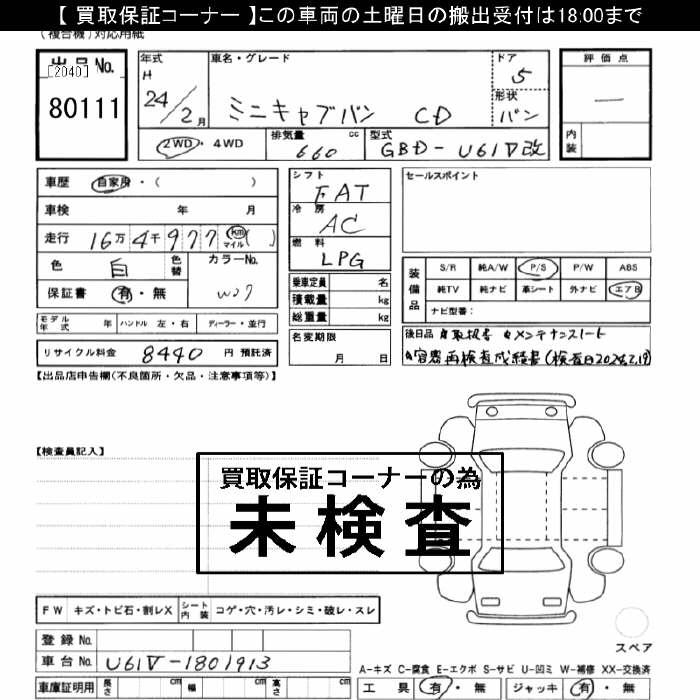 【 買取保証コーナー 】この車両の土曜日の搬出受付は18:00まで
(複合機)対応用紙
出品No.
[2040]
80111
年式 H 24/2月
車名・グレード ミニキャブバン CD
ドア 5
形状 バン
評価点 —
内装
2WD・4WD
排気量 660 cc
型式 GBD-U61V改
車歴 自家用・( )
車検 年 月
走行 16万4千977 km マイル ( )
色 白 色替 カラーNo. W07
保証書 有・無
シフト FAT
冷房 AC
燃料 LPG
乗車定員 名
積載量 kg
総重量 kg
セールスポイント
装備品
S/R 純A/W P/S P/W ABS
純TV 純ナビ 革シート 外ナビ エアB
ナビ型番:
モデル年式 年 ハンドル 左・右 ディーラー・並行
リサイクル料金 8440 円 預託済
名変期限 月 日
後日品 取扱書 メンテナンスノート
容器再検査成績書(検査日2024.2.19)
【出品店申告欄(不良箇所・欠品・注意事項等)】
【検査員記入】
買取保証コーナーの為
未検査
FW キズ・トビ石・割レX シート内装 コゲ・穴・汚レ・シミ・破レ・スレ
登録No.
車台No. U61V-1801913
車庫証明用 長さ cm 幅 cm 高さ cm
スペア
A-キズ C-腐食 E-エクボ S-サビ U-凹ミ W-補修 XX-交換済
工具 有・無 ジャッキ 有・無